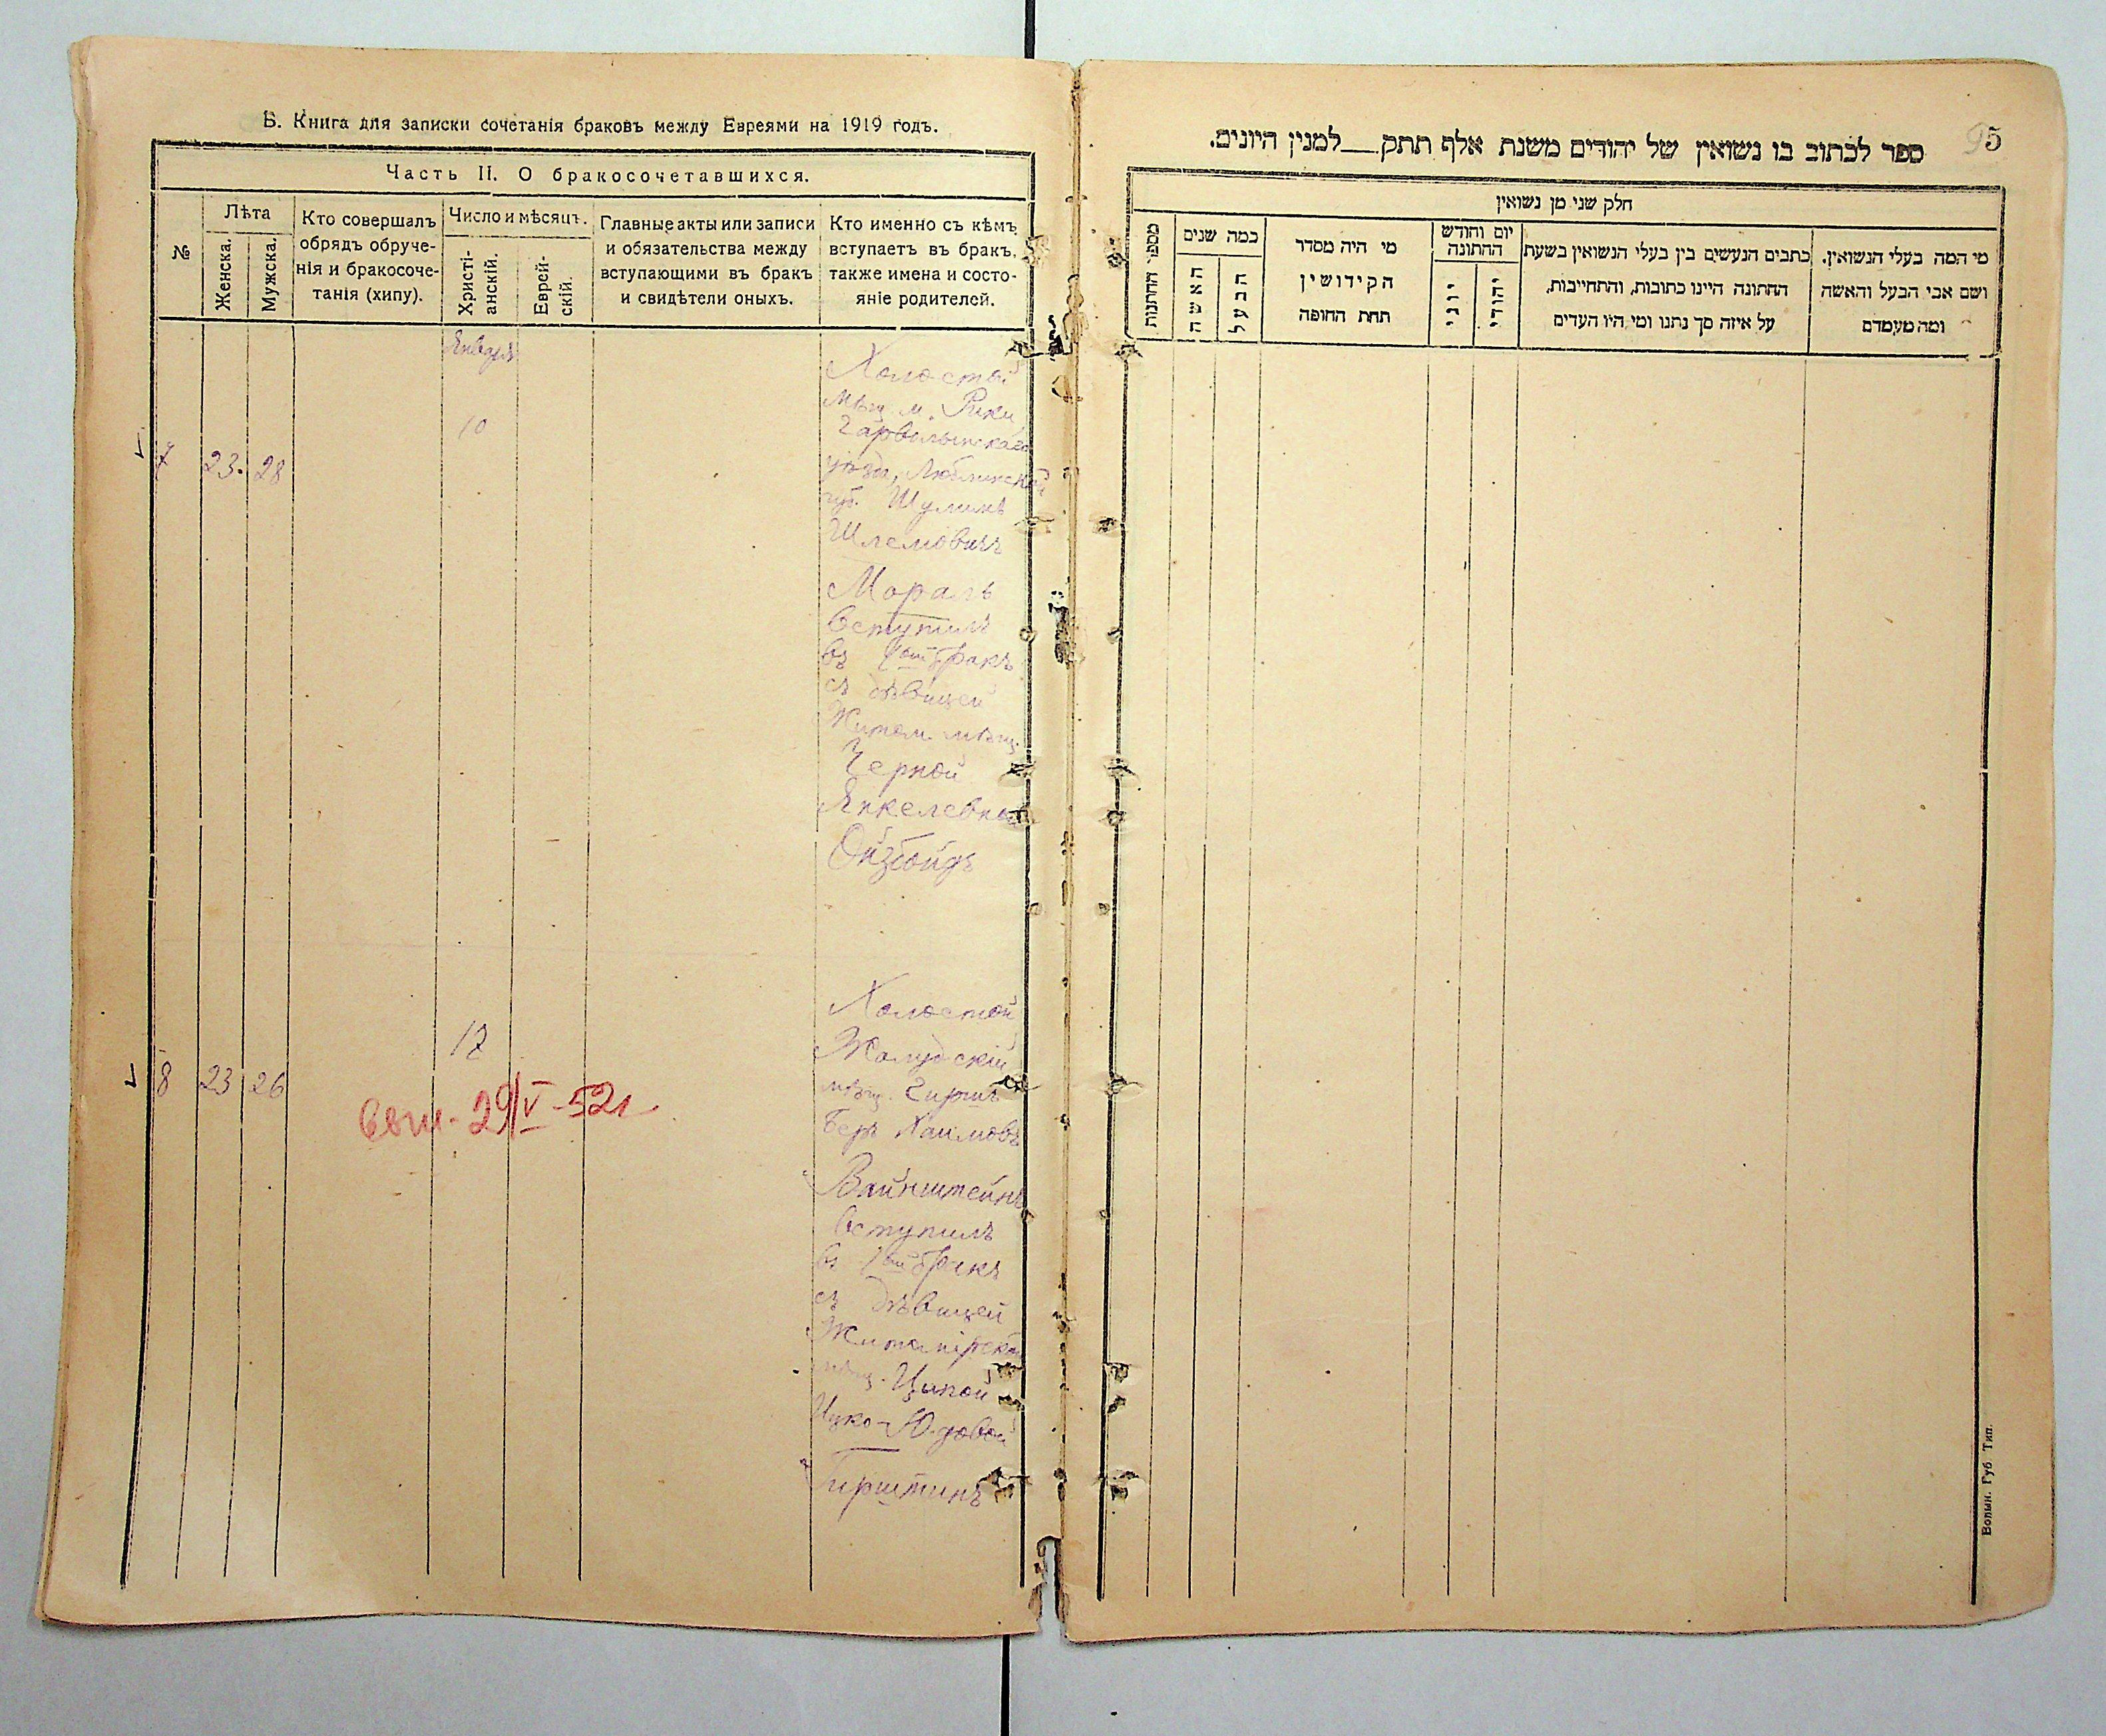 Б. Книга для записки сочетанія браковъ между Евреями на 1919 годъ.
Часть II. О бракосочетавшихся.
№
Лѣта
Женска.
Мужска.
Кто совершалъ
обрядъ обруче-
нія и бракосоче-
танія (хипу).
Число и мѣсяцъ.
Христі-
анскій.
Еврей-
скій.
Главные акты или записи
и обязательства между
вступающими въ бракъ
и свидѣтели оныхъ.
Кто именно съ кѣмъ
вступаетъ въ бракъ,
также имена и состо-
яніе родителей.
Января
7 23. 28
10
Холостой
мѣщ. м. Рики
Гарволинскаго
уѣзда, Люблинской
губ. Шулимъ
Шлемовичъ
Моралъ
вступилъ
въ 1ый бракъ
съ дѣвицей
Житом. мѣщ.
Черной
Янкелевной
Ойзбойдъ
8 23 26
17
выд. 29/V-52г
Холостой
Жолудскій
мѣщ. Гиршъ
Беръ Хаимовъ
Вайнштейнъ
вступилъ
въ 1ый бракъ
съ дѣвицей
Житомірской
мѣщ. Ципой
Ицко-Юдовой
Гирштинъ
95
ספר לכתוב בו נשואין של יהודים משנת אלף תתק__למנין היונים.
חלק שני מן נשואין
מספר החתונות
כמה שנים
האשה
הבעל
מי היה מסדר
הקידושין
תחת החופה
יום וחודש
החתונה
יוני
יהודי
כתבים הנעשים בין בעלי הנשואין בשעת
החתונה היינו כתובות, והתחייבות,
על איזה סך נתנו ומי היו העדים
מי המה בעלי הנשואין,
ושם אבי הבעל והאשה
ומה מעמדם
Волын. Губ Тип.